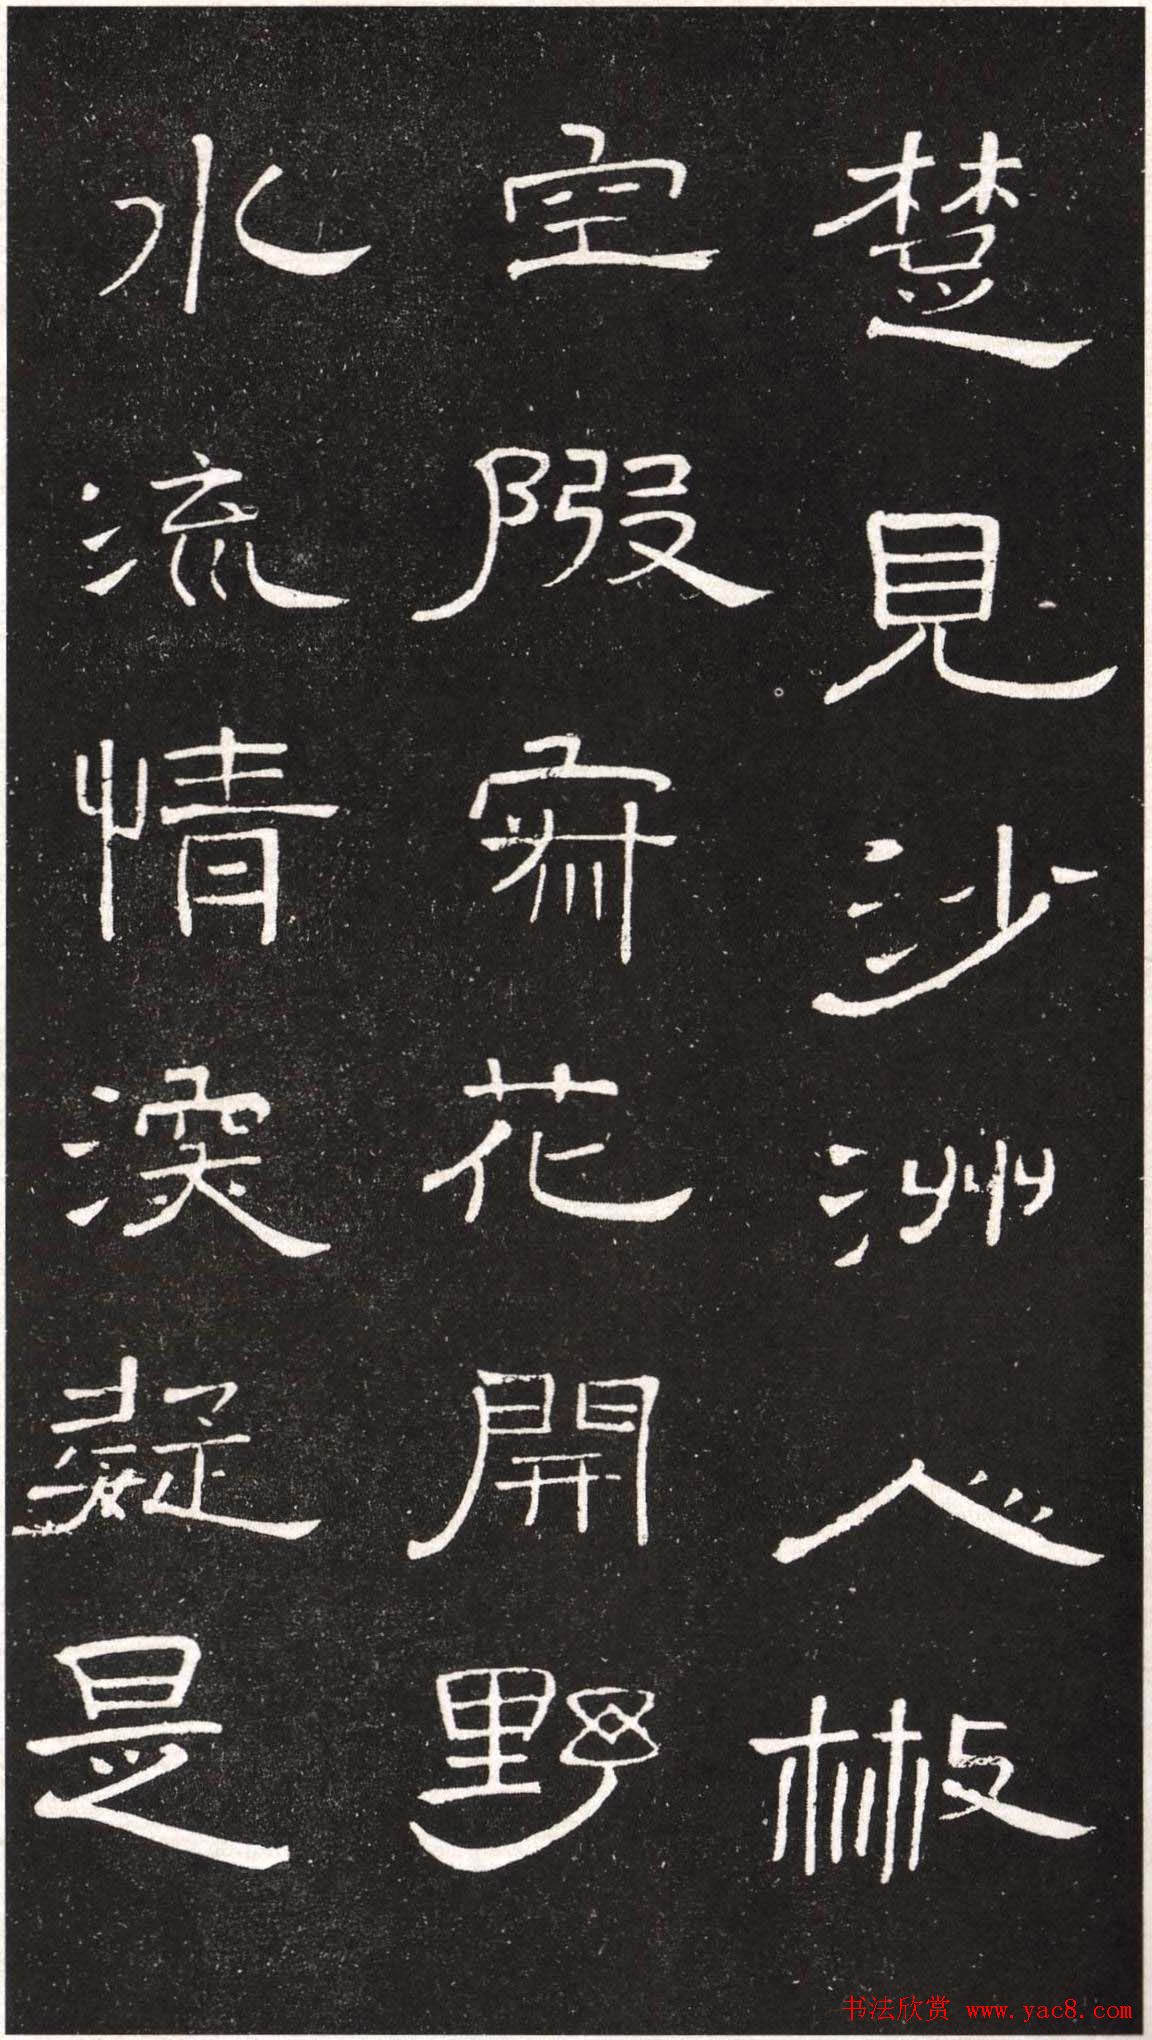 楚見沙洲人散
空寂花開野
水流情深疑是
书法欣赏 www.yac8.com